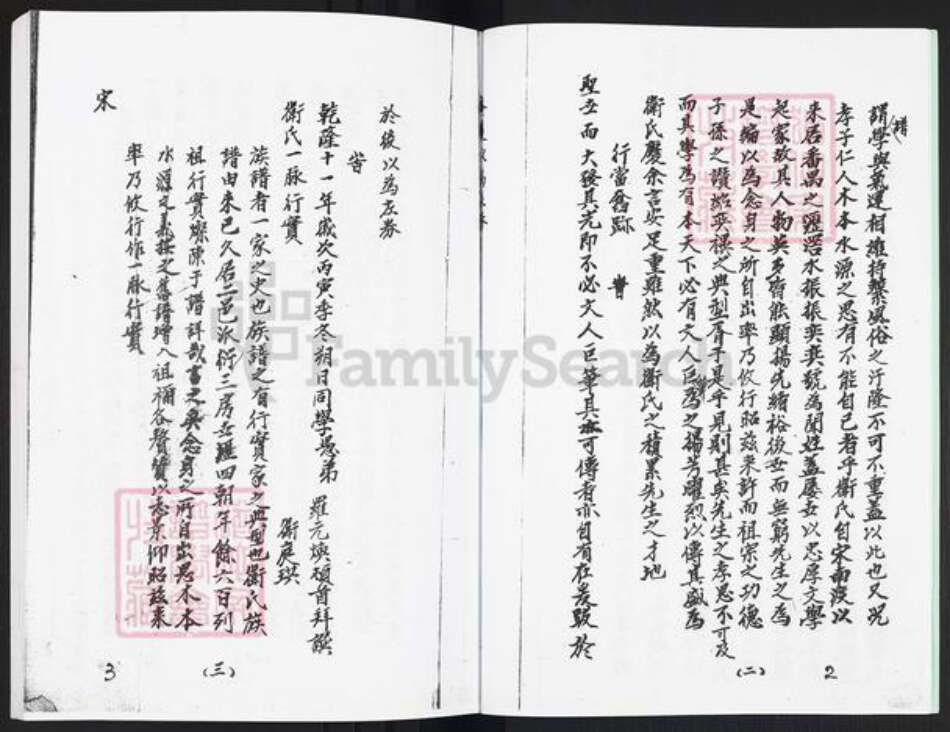 譜學與氣運相維持繫風俗之汙隆不可不重蓋以此也又況
孝子仁人木本水源之思有不能自已者乎衛氏自宋南渡以
來居番禺之瀝滘水振振奕奕號為閥姓蓋屢世以忠厚文學
起家故其人物英多賢能顯揚先緒裕後世而無窮先生之為
是編以為念身之所自出率乃攸行昭茲來許而祖宗之功德
子孫之讚紹奕禩之典型胥于是乎見則甚矣先生之孝思不可及
而其學為有本天下必有文人巨為之揚芳躍烈以傳其盛為
衛氏慶余言安足重雖然以為衛氏之積累先生之才地
行當舊跡 晋
聖世而大發其光即不必文人巨筆其可傳者亦自有在爰毀於
(二)
2
於後以為左券
皆
乾隆十一年歲次丙寅季冬朔日同學愚弟 羅元煥頓首拜譔
衛氏一脈行實 衛崑瑛
族譜者一家之史也族譜之有行實家之典型也衛氏族
譜由來已久居二邑派衍三房世歷四朝年餘六百列
祖行實燦陳于譜詳哉言之矣念身之所自出思木本
水源之義接之舊譜增入祖禰各聲贊以志景仰昭茲來
率乃攸行作一脈行實
宋
(三)
3
FamilySearch